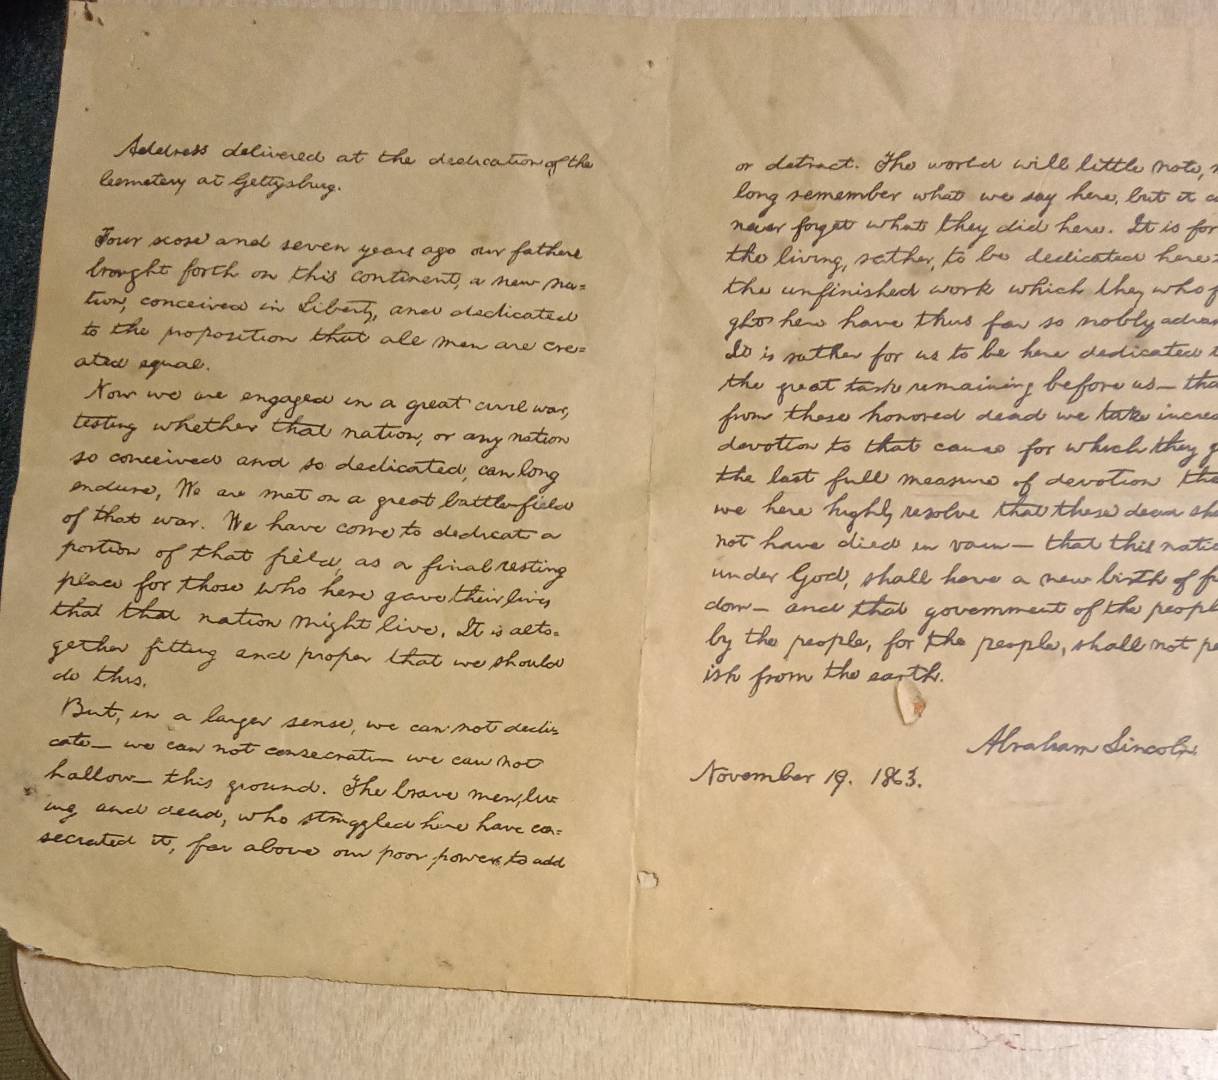 Address delivered at the dedication of the
Cemetery at Gettysburg.
Four score and seven years ago our fathers
brought forth on this continent, a new na=
tion, conceived in Liberty, and dedicated
to the proposition that all men are cre=
ated equal.
Now we are engaged in a great civil war,
testing whether that nation, or any nation
so conceived and so dedicated, can long
endure. We are met on a great battle-field
of that war. We have come to dedicate a
portion of that field, as a final resting
place for those who here gave their lives
that that nation might live. It is alto=
gether fitting and proper that we should
do this.
But, in a larger sense, we can not dedi=
cate— we can not consecrate— we can not
hallow— this ground. The brave men, liv=
ing and dead, who struggled here have con=
secrated it, far above our poor power to add
or detract. The world will little note,
long remember what we say here, but it
never forget what they did here. It is for
the living, rather, to be dedicated here
the unfinished work which they who
ght here have thus far so nobly
It is rather for us to be here dedicated
the great task remaining before us—
from these honored dead we take
devotion to that cause for which they
the last full measure of devotion
we here highly resolve that these dead
not have died in vain— that this
under God, shall have a new birth of
dom— and that government of the
by the people, for the people, shall not
ish from the earth.
Abraham Lincoln
November 19. 1863.